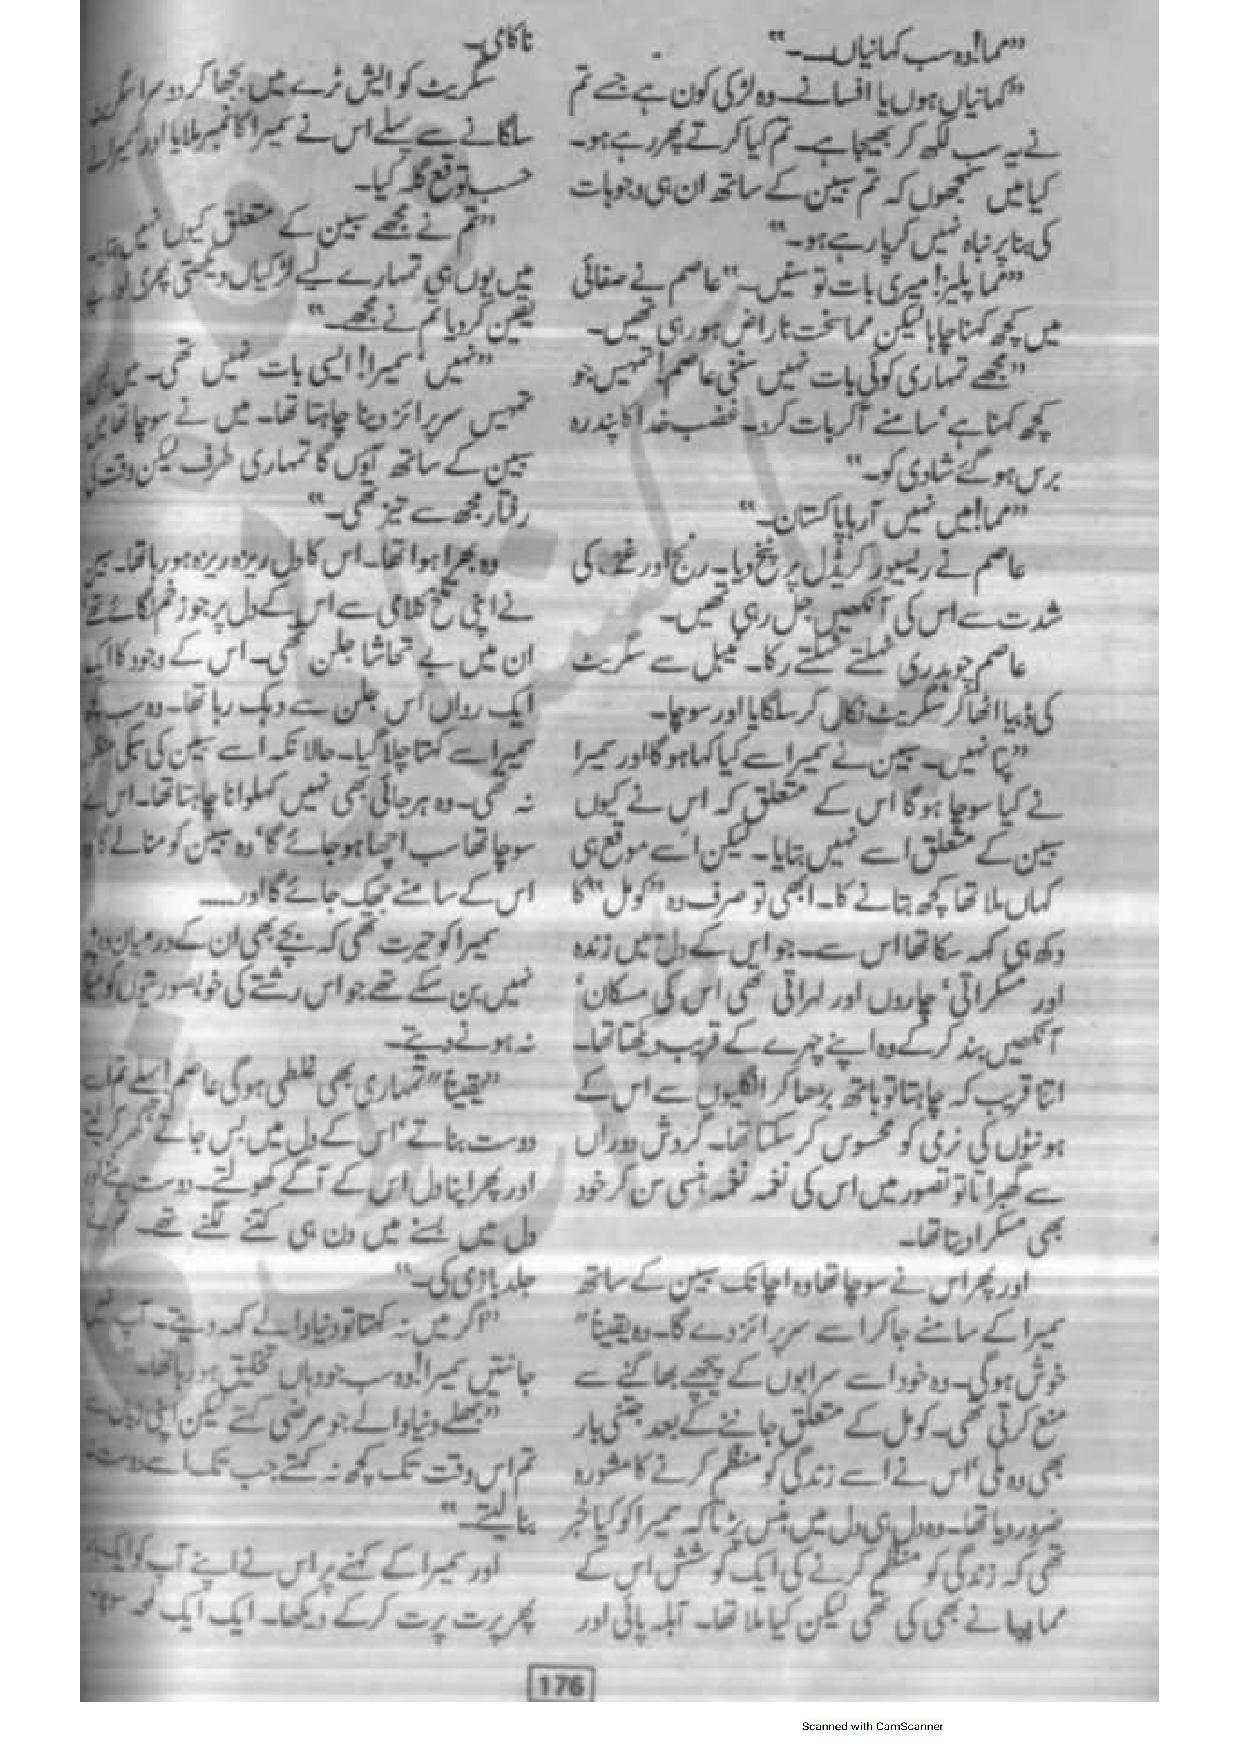 ”مما! وہ سب کہانیاں۔۔۔“
”کہانیاں ہوں یا افسانے۔ وہ لڑکی کون ہے جسے تم
نے یہ سب لکھ کر بھیجا ہے۔ تم کیا کرتے پھر رہے ہو۔
کیا میں سمجھوں کہ تم سبین کے ساتھ ان ہی وجوہات
کی بنا پر نباہ نہیں کر پا رہے ہو۔“
”مما پلیز! میری بات تو سنیں۔“ عاصم نے صفائی
میں کچھ کہنا چاہا لیکن مما سخت ناراض ہو رہی تھیں۔
”مجھے تمہاری کوئی بات نہیں سنی عاصم! تمہیں جو
کچھ کہنا ہے‘ سامنے آکر بات کرو۔ غضب خدا کا پندرہ
برس ہو گئے شادی کو۔“
”مما! میں نہیں آرہا پاکستان۔“
عاصم نے ریسیور کریڈل پر پٹخ دیا۔ رنج اور غصے کی
شدت سے اس کی آنکھیں جل رہی تھیں۔
عاصم چوہدری ٹہلتے ٹہلتے رکا۔ ٹیبل سے سگریٹ
کی ڈبیا اٹھا کر سگریٹ نکال کر سلگایا اور سوچا۔
”پتا نہیں۔ سبین نے سمیرا سے کیا کہا ہو گا اور سمیرا
نے کیا سوچا ہو گا اس کے متعلق کہ اس نے کیوں
سبین کے متعلق اسے نہیں بتایا۔ لیکن اسے موقع ہی
کہاں ملا تھا کچھ بتانے کا۔ ابھی تو صرف وہ ”کومل“ کا
دکھ ہی کہہ سکا تھا اس سے۔ جو اس کے دل میں زندہ
اور مسکراتی‘ چاروں اور لہراتی تھی اس کی مسکان‘
آنکھیں بند کر کے وہ اپنے چہرے کے قریب دیکھتا تھا۔
اتنا قریب کہ چاہتا تو ہاتھ بڑھا کر انگلیوں سے اس کے
ہونٹوں کی نرمی کو محسوس کر سکتا تھا۔ گردش دوراں
سے گھبراتا تو تصور میں اس کی نغمہ نغمہ ہنسی سن کر خود
بھی مسکرا دیتا تھا۔
اور پھر اس نے سوچا تھا وہ اچانک سبین کے ساتھ
سمیرا کے سامنے جا کر اسے سرپرائز دے گا۔ وہ یقیناً“
خوش ہوگی۔ وہ خود اسے سرابوں کے پیچھے بھاگنے سے
منع کرتی تھی۔ کومل کے متعلق جاننے کے بعد جتنی بار
بھی وہ ملی‘ اس نے اسے زندگی کو منظم کرنے کا مشورہ
ضرور دیا تھا۔ وہ دل ہی دل میں ہنس پڑتا کہ سمیرا کو کیا خبر
تھی کہ زندگی کو منظم کرنے کی ایک کوشش اس کے
مما پپا نے بھی کی تھی لیکن کیا ملا تھا۔ آبلہ پائی اور
ناکامی۔
سگریٹ کو ایش ٹرے میں بجھا کر دوسرا سگریٹ
سلگانے سے پہلے اس نے سمیرا کا نمبر ملایا اور سمیرا نے
حسب توقع گلہ کیا۔
”تم نے مجھے سبین کے متعلق کیوں نہیں بتایا۔
میں یوں ہی تمہارے لیے لڑکیاں دیکھتی پھری اور
یقین کر دیا تم نے مجھے۔“
”نہیں‘ سمیرا! ایسی بات نہیں تھی۔ میں
تمہیں سرپرائز دینا چاہتا تھا۔ میں نے سوچا تھا میں
سبین کے ساتھ آؤں گا تمہاری طرف لیکن وقت کی
رفتار مجھ سے تیز تھی۔“
وہ بھرا ہوا تھا۔ اس کا دل ریزہ ریزہ ہو رہا تھا۔ سبین
نے اپنی تلخ کلامی سے اس کے دل پر جو زخم لگائے تھے
ان میں بے تحاشا جلن تھی۔ اس کے وجود کا ایک
ایک رواں اس جلن سے دہک رہا تھا۔ وہ سب
سمیرا سے کہتا چلا گیا۔ حالانکہ اسے سبین کی سبکی منظور
نہ تھی۔ وہ ہرجائی بھی نہیں کہلوانا چاہتا تھا۔ اس نے
سوچا تھا سب اچھا ہو جائے گا‘ وہ سبین کو منا لے گا۔
اس کے سامنے جھک جائے گا اور۔۔۔۔
سمیرا کو حیرت تھی کہ بچے بھی ان کے درمیان
نہیں بن سکے تھے جو اس رشتے کی خوبصورتیوں کو
نہ ہونے دیتے۔
”یقیناً“ تمہاری بھی غلطی ہوگی عاصم! پہلے تم اسے
دوست بناتے‘ اس کے دل میں بس جاتے‘ گھر کرتے
اور پھر اپنا دل اس کے آگے کھولتے۔ دوست بننے اور
دل میں بسنے میں دن ہی کتنے لگنے تھے۔ تم نے
جلد بازی کی۔“
”اگر میں نہ کہتا تو دنیا والے کہہ دیتے۔ آپ نہیں
جانتیں سمیرا! وہ سب جو وہاں تخلیق ہو رہا تھا۔
”بھلے دنیا والے جو مرضی کہتے لیکن اپنی زبان سے
تم اس وقت تک کچھ نہ کہتے جب تک اسے دوست نہ
بنا لیتے۔“
اور سمیرا کے کہنے پر اس نے اپنے آپ کو ایک بار
پھر پرت پرت کر کے دیکھا۔ ایک ایک لمحہ
176
Scanned with CamScanner